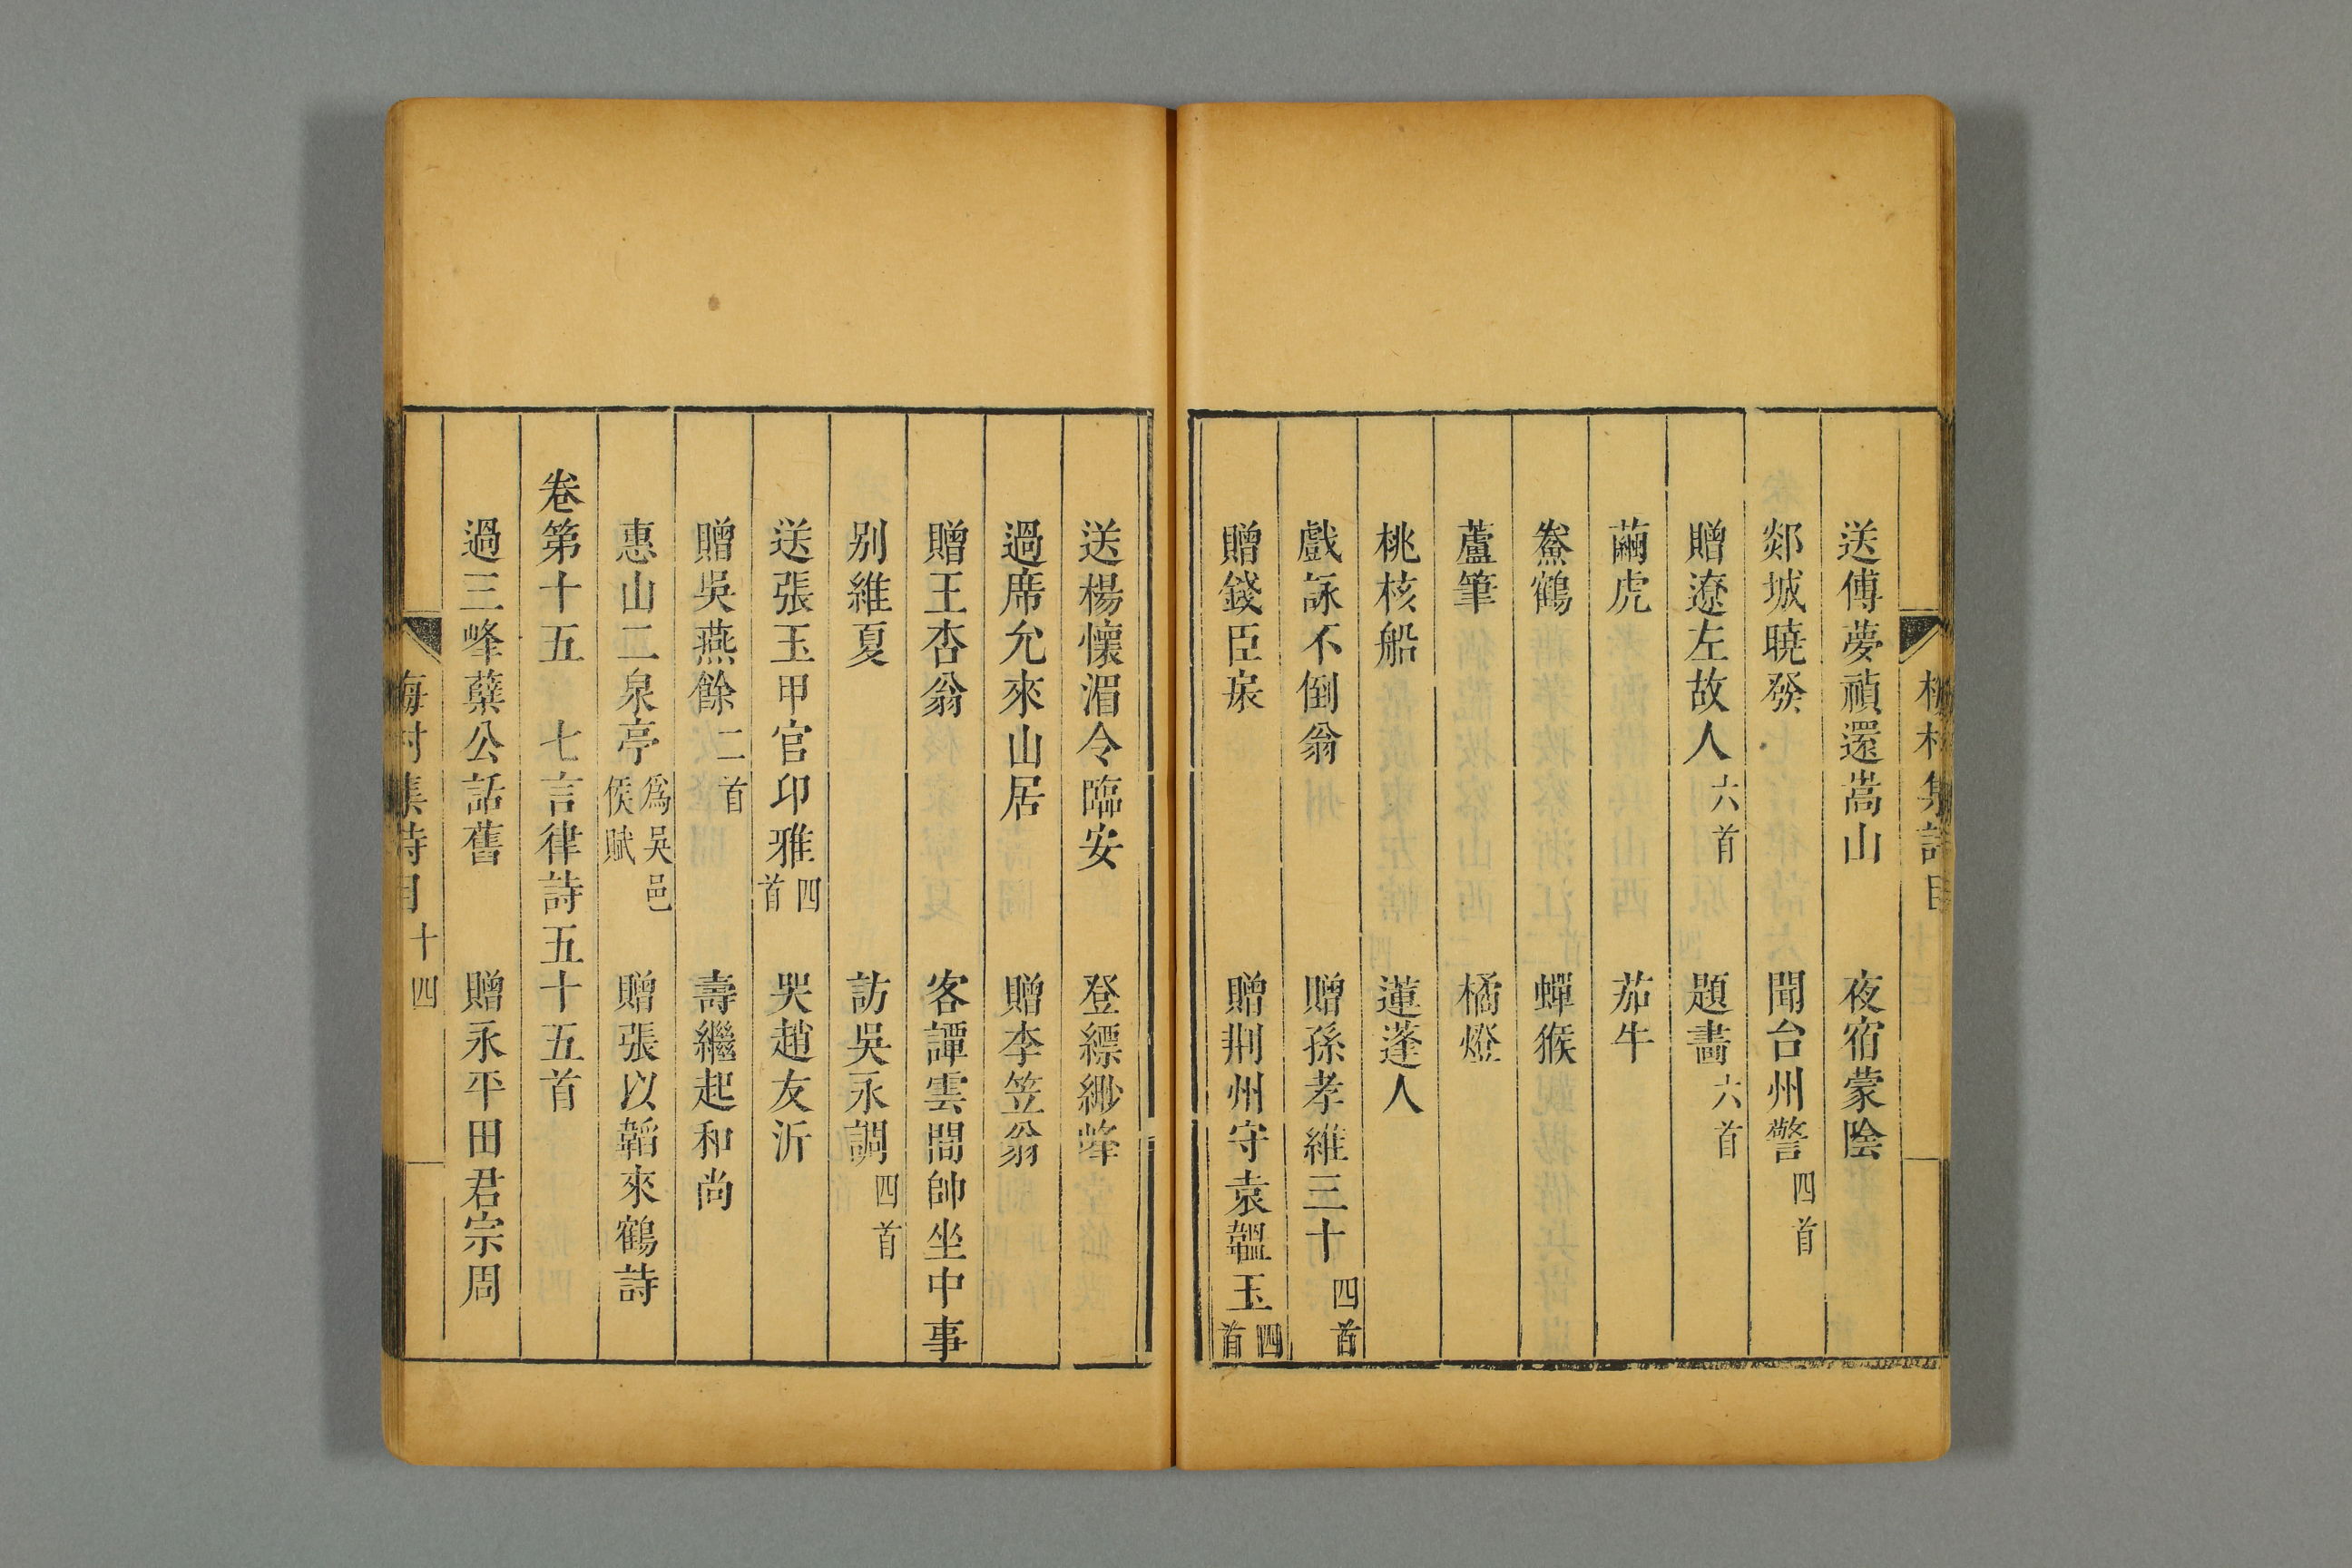 送傅夢禎還嵩山　夜宿蒙陰
郯城曉發　聞台州警四首
贈遼左故人六首　題畵六首
繭虎　茄牛
鮝鶴　蟬猴
蘆筆　橘燈
桃核船　蓮蓬人
戲詠不倒翁　贈孫孝維三十四首
贈錢臣扆　贈荆州守袁韞玉四首
送楊懷湄令臨安　登縹緲峰
過席允來山居　贈李笠翁
贈王杏翁　客譚雲間帥坐中事
别維夏　訪吳永調四首
送張玉甲官印雅四首　哭趙友沂
贈吳燕餘二首　壽繼起和尚
惠山二泉亭爲吳邑侯賦　贈張以韜來鶴詩
卷第十五　七言律詩五十五首
過三峰蘗公話舊　贈永平田君宗周
梅村集詩目　十四